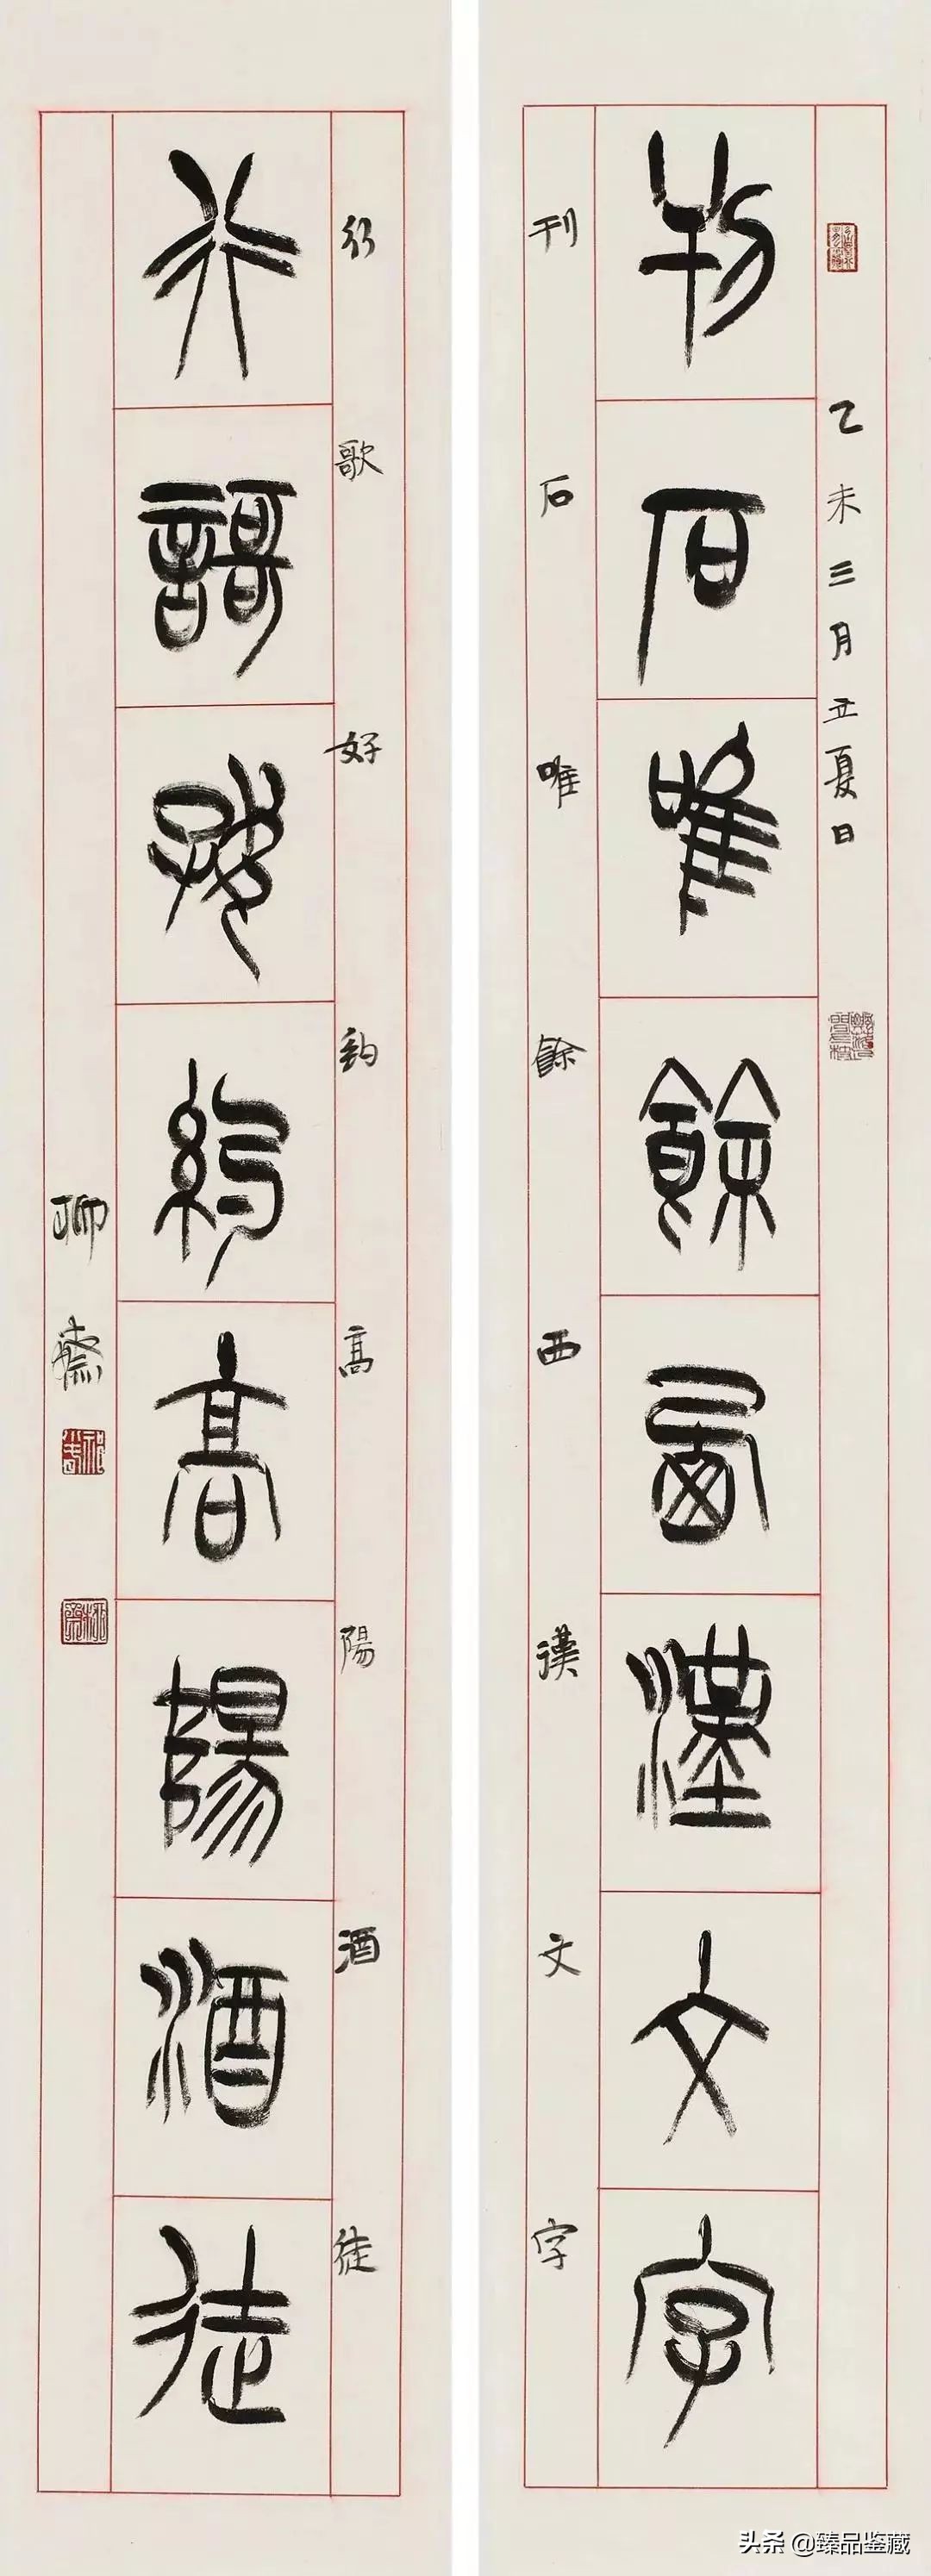 乙未三月立夏日
刊石唯餘西漢文字
刊石唯餘西漢文字
行歌好約高陽酒徒
行歌好約高陽酒徒
聊齋
头条 @臻品鉴藏